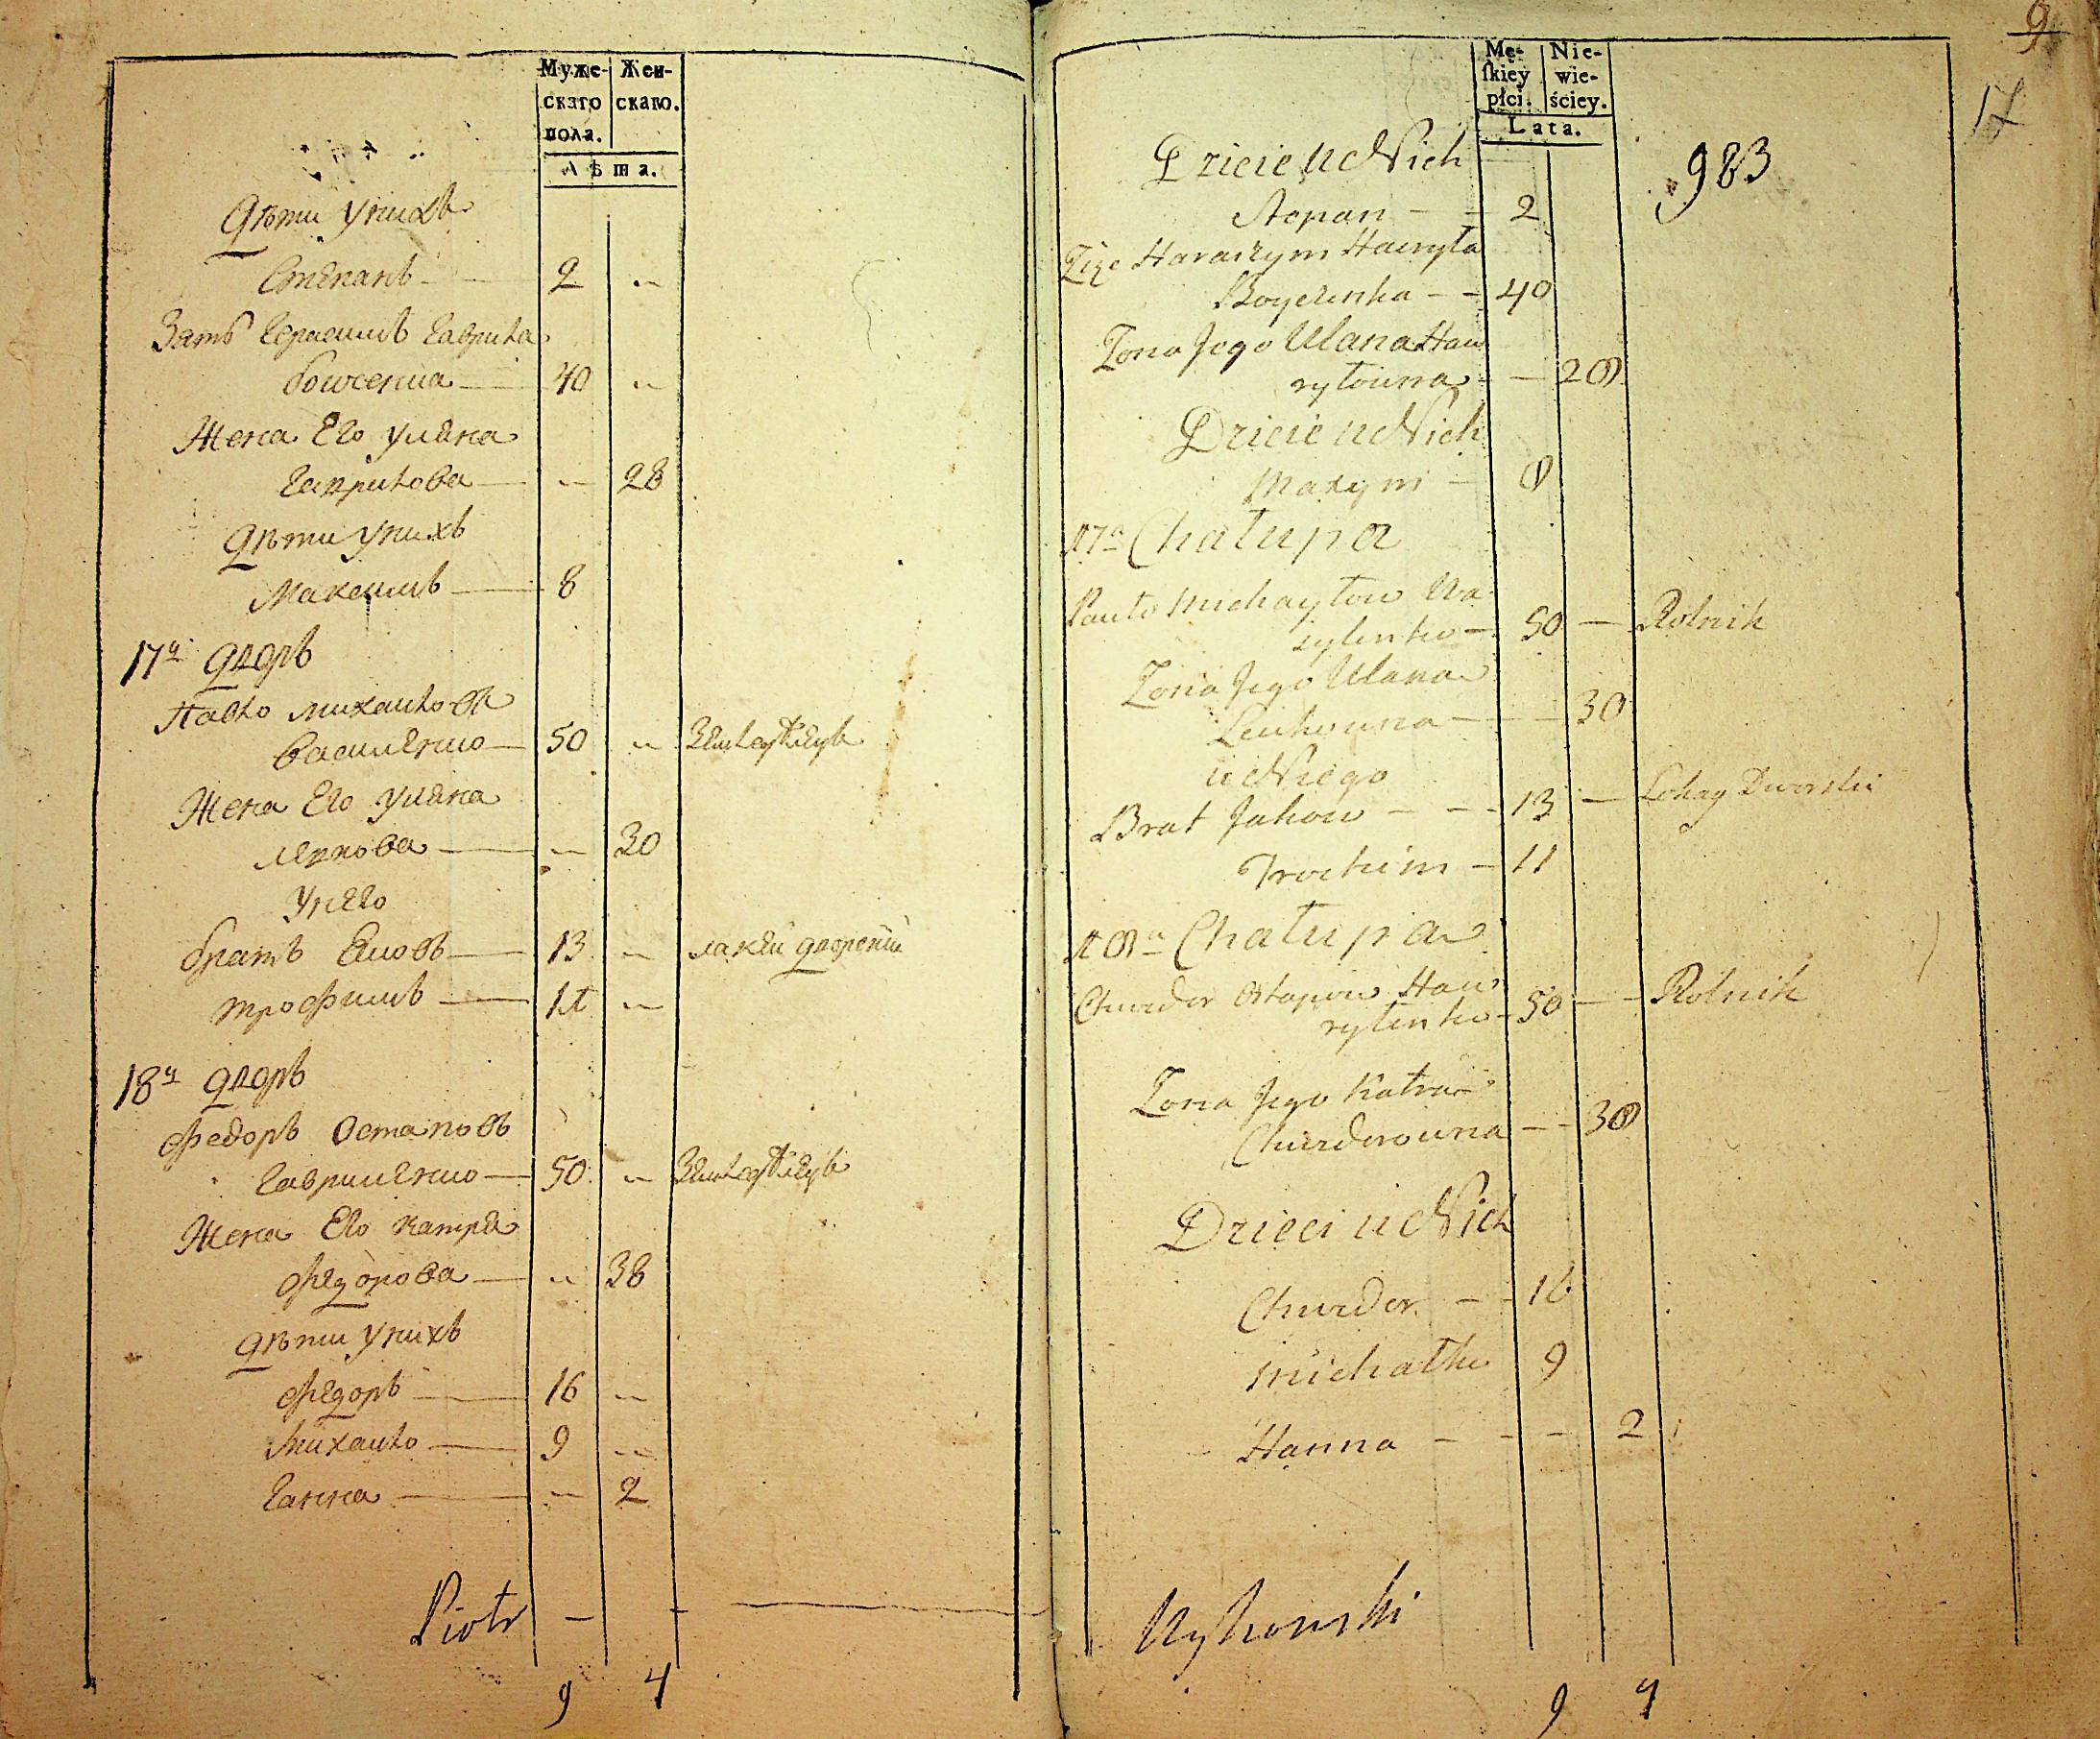 Муже-
скаго
пола.
Жен-
скаго.
Лѣта.
Дѣти у нихъ
Степанъ 2 "
Зять Герасимъ Гаврила
40 "
Жена Его Уляна
Гаврилова " 28
Дѣти у нихъ
Максимъ 8
17й дворъ
Павло Михайловъ
Василенко 50 "
Жена Его Уляна
Левкова " 30
У него
братъ Яковъ 13 " лакей дворскій
трофимъ 11 "
18й дворъ
Федоръ Остаповъ
Гавриленко 50 "
Жена Его катря
Федорова " 38
Дѣти у нихъ
Федоръ 16 "
Михайло 9 "
Ганна " 2
Piotr
9 4
9
17
983
Mę-
skiey
płci.
Nie-
wie-
ściey.
Lata.
Dzicie u Nich
Stepan 2
Zięc Haraszym Hawryła
40
Zona Jego Ulana Haw
ryłowna 28
Dzicie u Nich
Maxym 8
17a Chałupa
Pawło Michayłow Wa
sylenko 50 Rolnik
Zona Jego Ulana
Lewkowna 30
u Niego
Brat Jakow 13 Lokay Dworski
Trochim 11
18a Chałupa
Chwedor Ostapow Haw
rylenko 50 Rolnik
Zona Jego Katra
Chwedorowna 38
Dzieci u Nich
Chwedor 16
Michałko 9
Hanna 2
9 4